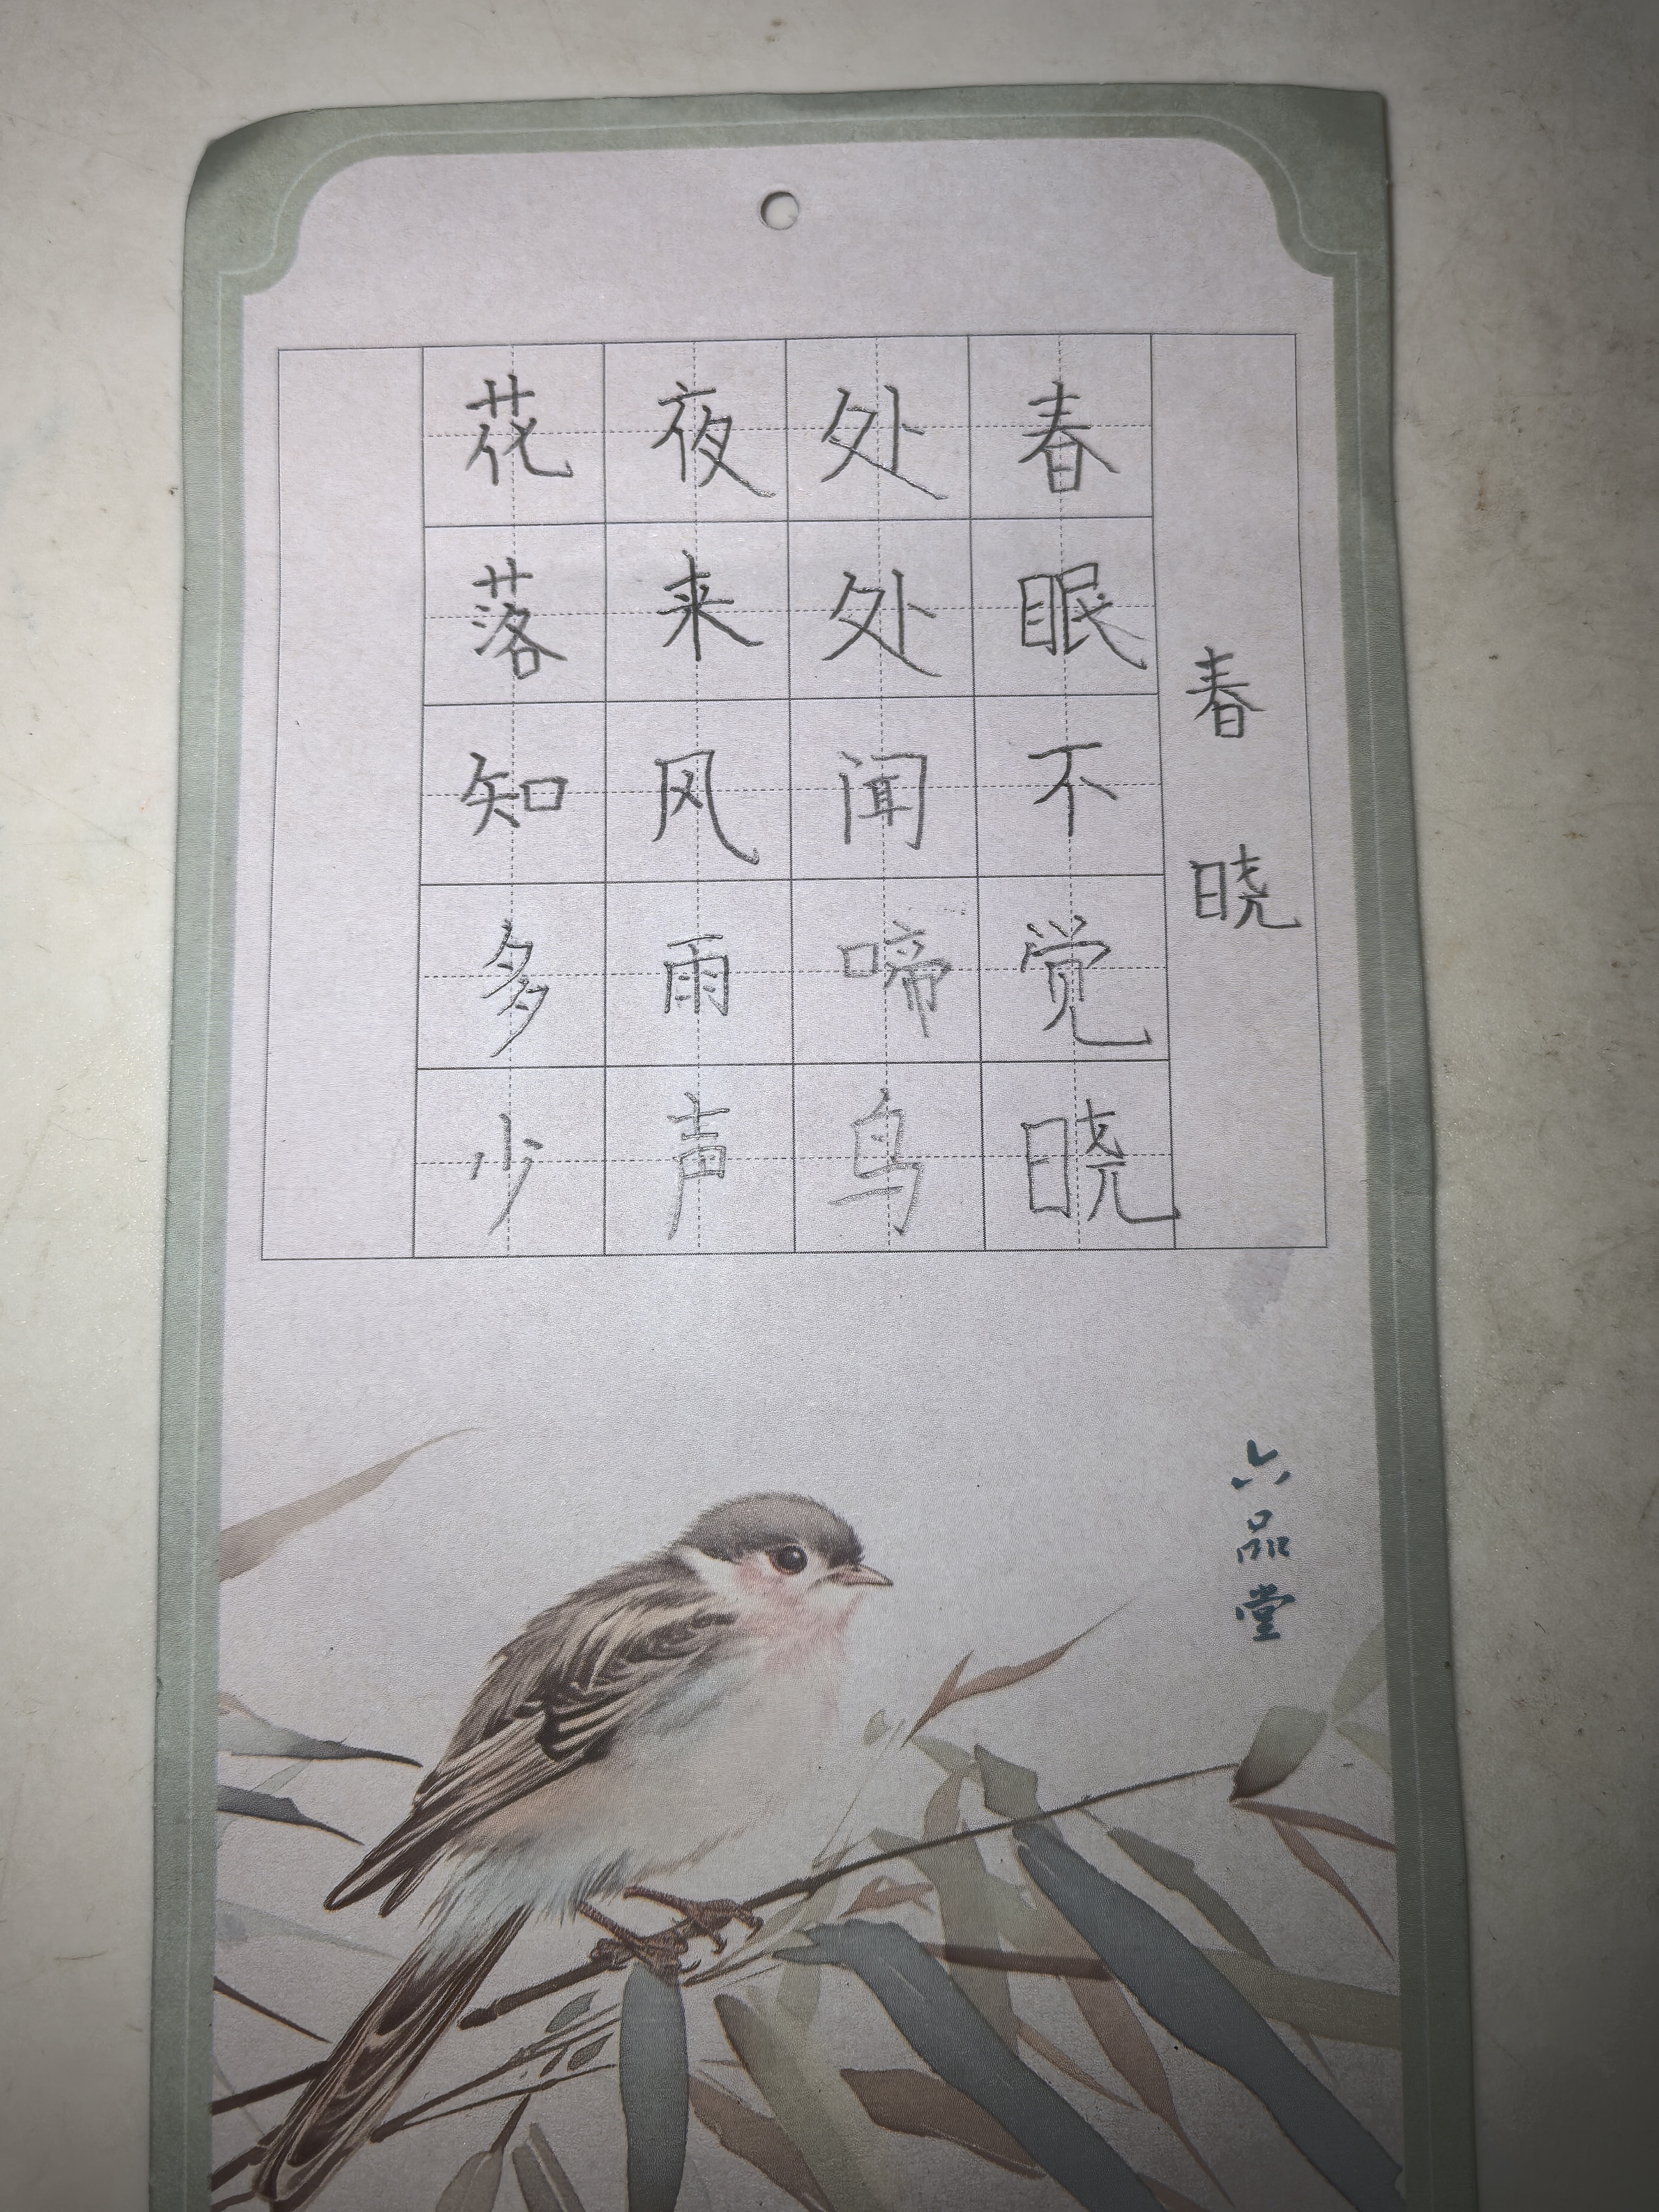 春晓
春眠不觉晓
处处闻啼鸟
夜来风雨声
花落知多少
六品堂